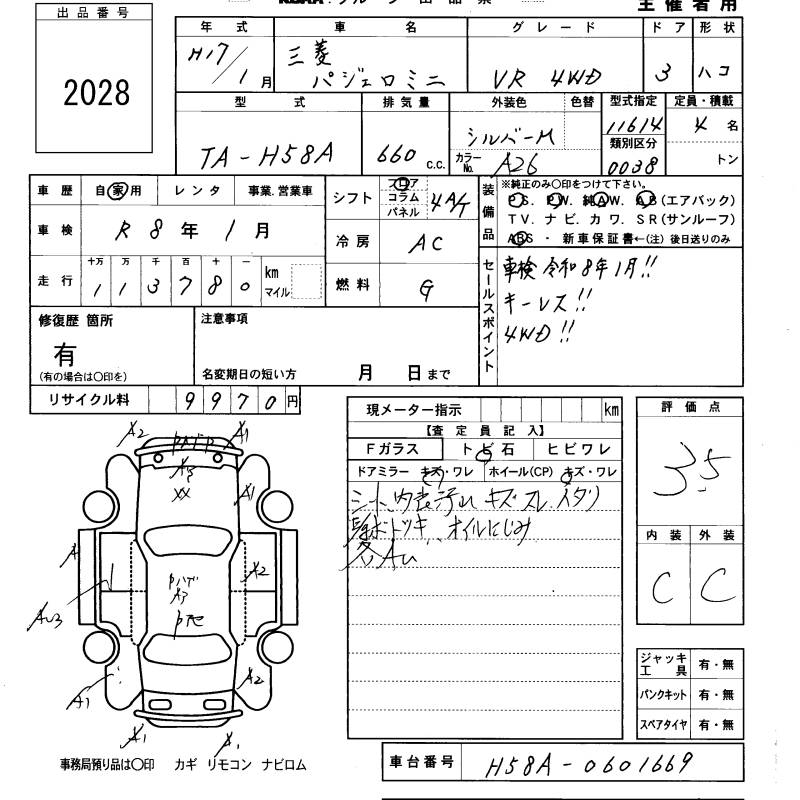 出品番号
主催者用
2028
年式 車名 グレード ドア 形状
H17/1月 三菱 パジェロミニ VR 4WD 3 ハコ
型式 排気量 外装色 色替 型式指定 定員・積載
TA-H58A 660 c.c. シルバーM 11614 4名
カラーNo. A26 類別区分 0038 トン
車歴 自家用 レンタ 事業.営業車
シフト フロア コラム パネル 4A/T
装備品 ※純正のみ〇印をつけて下さい。
PS. PW. 純AW. AB(エアバック)
TV. ナビ. カワ. SR(サンルーフ)
ABS ・ 新車保証書←(注) 後日送りのみ
車検 R8年1月
冷房 AC
走行 十万 万 千 百 十 一
113780 km マイル
燃料 G
セールスポイント
車検 令和8年1月!!
キーレス!!
4WD!!
修復歴 箇所
有
(有の場合は〇印を)
注意事項
名変期日の短い方 月 日まで
リサイクル料 9970円
現メーター指示 km
【査定員記入】
Fガラス トビ石 ヒビワレ
ドアミラー キズ・ワレ ホイール(CP) キズ・ワレ
シート、内張汚れ キズ スレ
オイルにじみ
評価点
3.5
内装 外装
C C
A2 A1
A3
XX
A1
A
A2
A3
AU3
A1 A2
A1 A1
ジャッキ工具 有・無
パンクキット 有・無
スペアタイヤ 有・無
事務局預り品は〇印 カギ リモコン ナビロム
車台番号 H58A-0601669